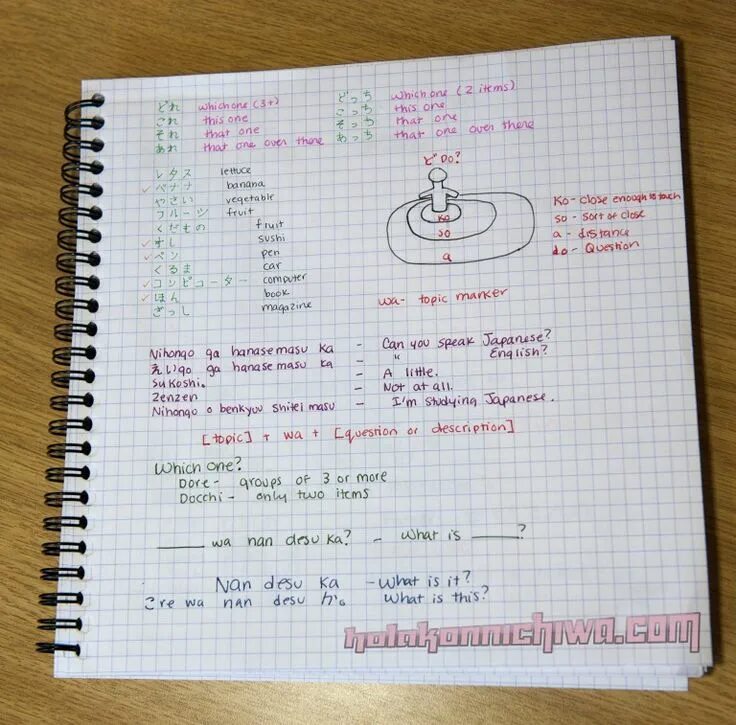 どれ which one (3+)
これ this one
それ that one
あれ that one over there
どっち which one (2 items)
こっち this one
そっち that one
あっち that one over there
レタス lettuce
✓ バナナ banana
やさい vegetable
フルーツ fruit
くだもの fruit
✓ すし sushi
✓ ペン pen
くるま car
✓ コンピューター computer
✓ ほん book
ざっし magazine
ど Do?
Ko
so
a
Ko - close enough to touch
so - sort of close
a - distance
do - Question
wa - topic marker
Nihongo ga hanasemasu ka - Can you speak Japanese?
えいgo ga hanasemasu ka - " English?
Sukoshi. - A little.
Zenzen - Not at all.
Nihongo o benkyou shitei masu - I'm studying Japanese.
[topic] + wa + [question or description]
Which one?
Dore - groups of 3 or more
Docchi - only two items
____ wa nan desu ka? - What is ____?
Nan desu ka - What is it?
こre wa nan desu か。 What is this?
holakonnichiwa.com